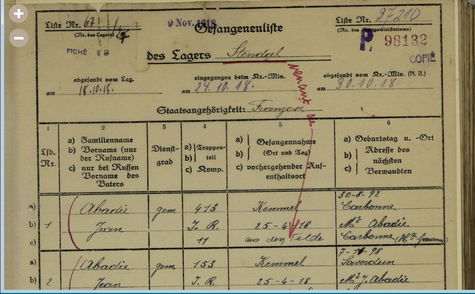 Liste Nr. 67
(Nr. des Lagers)
9 Nov. 1918
Gefangenenliste
Liste Nr. 37210
FICHÉ
des Lagers Stendal
P 98132
COPIÉ
abgesandt vom Lag.
am 18.10.18.
eingegangen beim Kr.-Min.
am 24.10.18
abgesandt vom Kr.-Min. (N. B.)
am 30.10.18
venant de
Staatsangehörigkeit: Français
Lfd. Nr.
a) Familienname
b) Vorname (nur der Rufname)
c) nur bei Russen Vorname des Vaters
Dienstgrad
a) Truppenteil
c) Komp.
a) Gefangennahme (Ort und Tag)
c) vorhergehender Aufenthaltsort
a) Geburtstag u. -Ort
b) Adresse des nächsten Verwandten
1 2 3 4 5 6
a) Abadie gem 415 Kemmel 30-8-92 Carbonne
1 b) Jean I. R. 25-4-18 Mr Abadie
c) 11 aus dem Felde Carbonne
a) Abadie gem 153 Kemmel
2 b) Jean I. R. 25-4-18 Mr J. Abadie